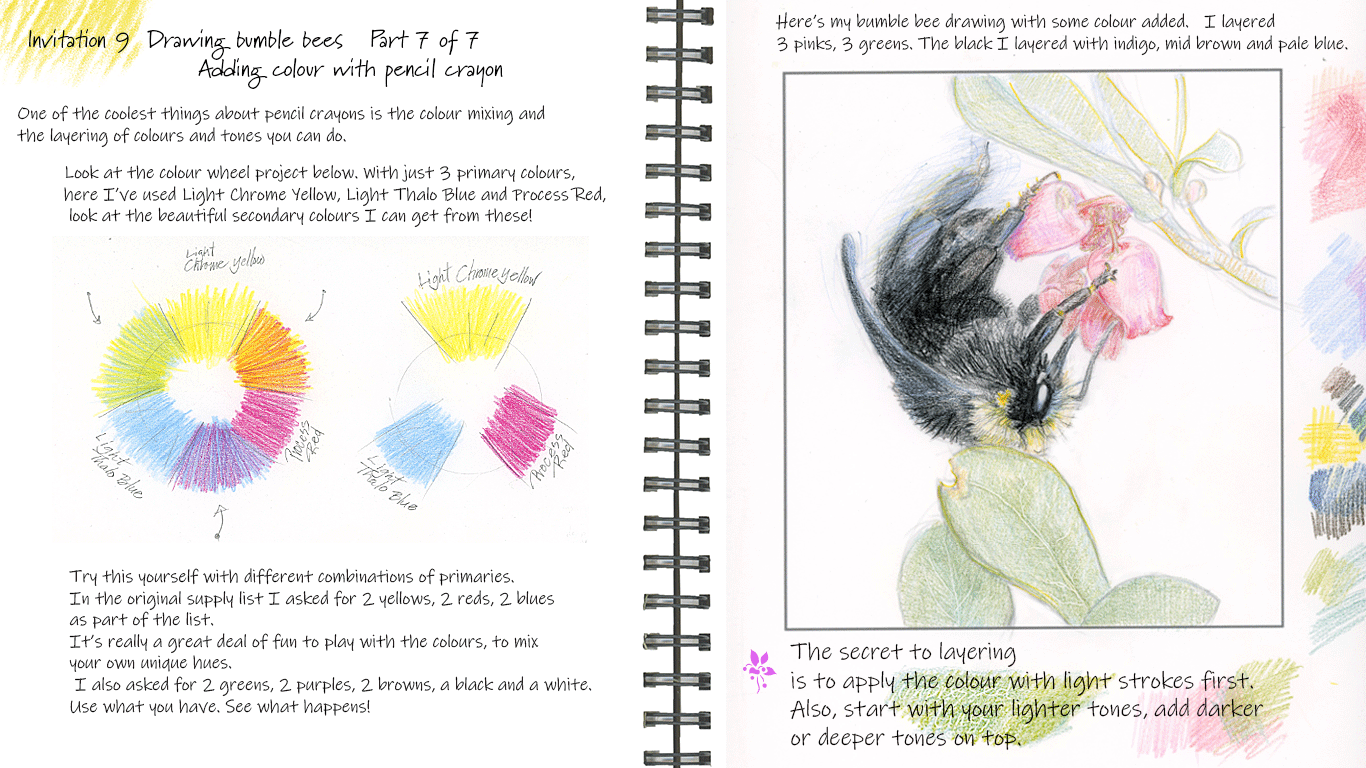 Invitation 9 Drawing bumble bees Part 7 of 7
Adding colour with pencil crayon
One of the coolest things about pencil crayons is the colour mixing and
the layering of colours and tones you can do.
Look at the colour wheel project below. With just 3 primary colours,
here I've used Light Chrome Yellow, Light Thalo Blue and Process Red,
look at the beautiful secondary colours I can get from these!
Light
Chrome yellow
Light Thalo Blue
Process Red
Light Chrome yellow
Light Thalo Blue
Process Red
Try this yourself with different combinations of primaries.
In the original supply list I asked for 2 yellows, 2 reds, 2 blues
as part of the list.
It's really a great deal of fun to play with the colours, to mix
your own unique hues.
I also asked for 2 greens, 2 purples, 2 browns, a black and a white.
Use what you have. See what happens!
Here's my bumble bee drawing with some colour added. I layered
3 pinks, 3 greens. The black I layered with indigo, mid brown and pale blue.
The secret to layering
is to apply the colour with light strokes first.
Also, start with your lighter tones, add darker
or deeper tones on top.